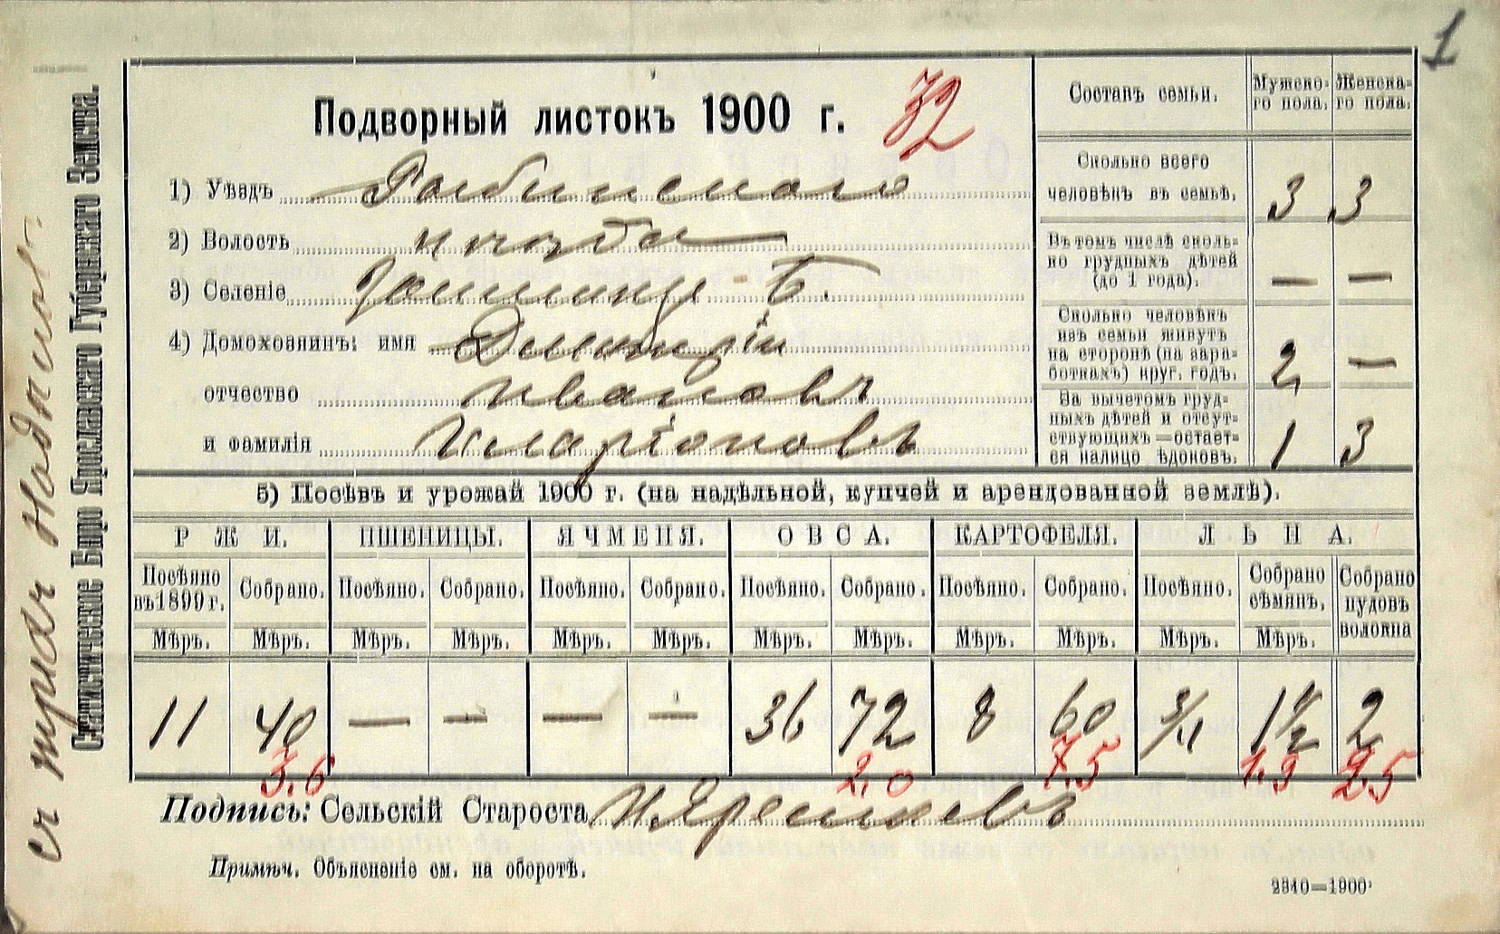 1
Подворный листокъ 1900 г. 32
1) Уѣздъ Рыбинскаго
2) Волость
3) Селеніе Б.
4) Домохозяинъ: имя Дмитрій
отчество Ивановъ
и фамилія Иларіоновъ
Составъ семьи. Мужско- Женска-
го пола. го пола.
Сколько всего
человѣкъ въ семьѣ. 3 3
Въ томъ числѣ сколь-
ко грудныхъ дѣтей
(до 1 года). — —
Сколько человѣкъ
изъ семьи живутъ
на сторонѣ (на зара-
боткахъ) круг. годъ. 2 —
За вычетомъ груд-
ныхъ дѣтей и отсут-
ствующихъ — остает-
ся налицо ѣдоковъ. 1 3
5) Посѣвъ и урожай 1900 г. (на надѣльной, купчей и арендованной землѣ).
РЖИ. ПШЕНИЦЫ. ЯЧМЕНЯ. ОВСА. КАРТОФЕЛЯ. ЛЬНА.
Посѣяно въ 1899 г. Собрано. Посѣяно. Собрано. Посѣяно. Собрано. Посѣяно. Собрано. Посѣяно. Собрано. Посѣяно. Собрано сѣмянъ. Собрано пудовъ волокна
Мѣръ. Мѣръ. Мѣръ. Мѣръ. Мѣръ. Мѣръ. Мѣръ. Мѣръ. Мѣръ. Мѣръ. Мѣръ. Мѣръ.
11 40 — — — — 36 72 8 60 3/4 1 1/2 2
3.6 2.0 7.5 1.9 2.5
Подпись: Сельскій Староста
Примѣч. Объясненіе см. на оборотѣ.
2340—1900
Статистическое Бюро Ярославскаго Губернскаго Земства.